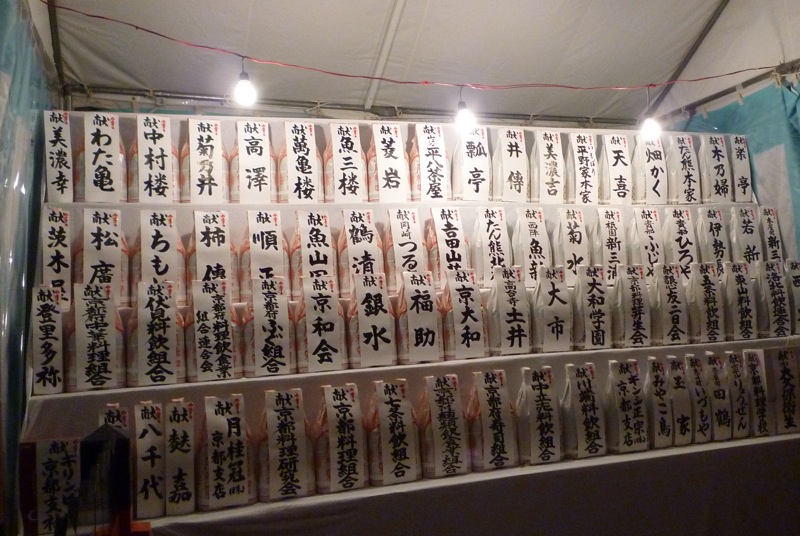 献 美濃幸
献 わた亀
献 中村楼
献 菊乃井
献 高澤
献 萬亀楼
献 魚三楼
献 菱岩
献 平八茶屋
瓢亭
献 井傳
献 美濃吉
献 平野家本家
献 天喜
献 畑かく
献 たん熊本家
献 木乃婦
献 楽亭
献 茨木屋
献 松廣
献 ちも
献 柿傳
献 順正
献 魚山
献 鶴清
献 岡崎 つる
献 吉田山荘
献 たん熊北
献 西陣 魚新
献 菊水
献 祇園 新三浦
献 ふじや
献 ひろや
献 伊勢長
献 若新
献 登里多祢
献 京都中央料理組合
献 伏見料飲組合
献 京都府料理飲食業組合連合会
献 京和会
献 銀水
献 福助
献 京大和
献 高台寺 土井
献 大市
献 大和学園
献 京都料理芽生会
献 五条料飲組合
献 東山料飲組合
献 キリンビ 京都支社
献 八千代
献 麩嘉
献 月桂冠㈱ 京都支店
献 京都料理研究会
献 京都料理組合
献 京都府寿司組合
献 中立売料飲組合
献 川端料飲組合
献 キンシ正宗㈱ 京都支店
献 みやこ鳥
献 玉家
献 いづもや
献 田鶴
献 りうぜん